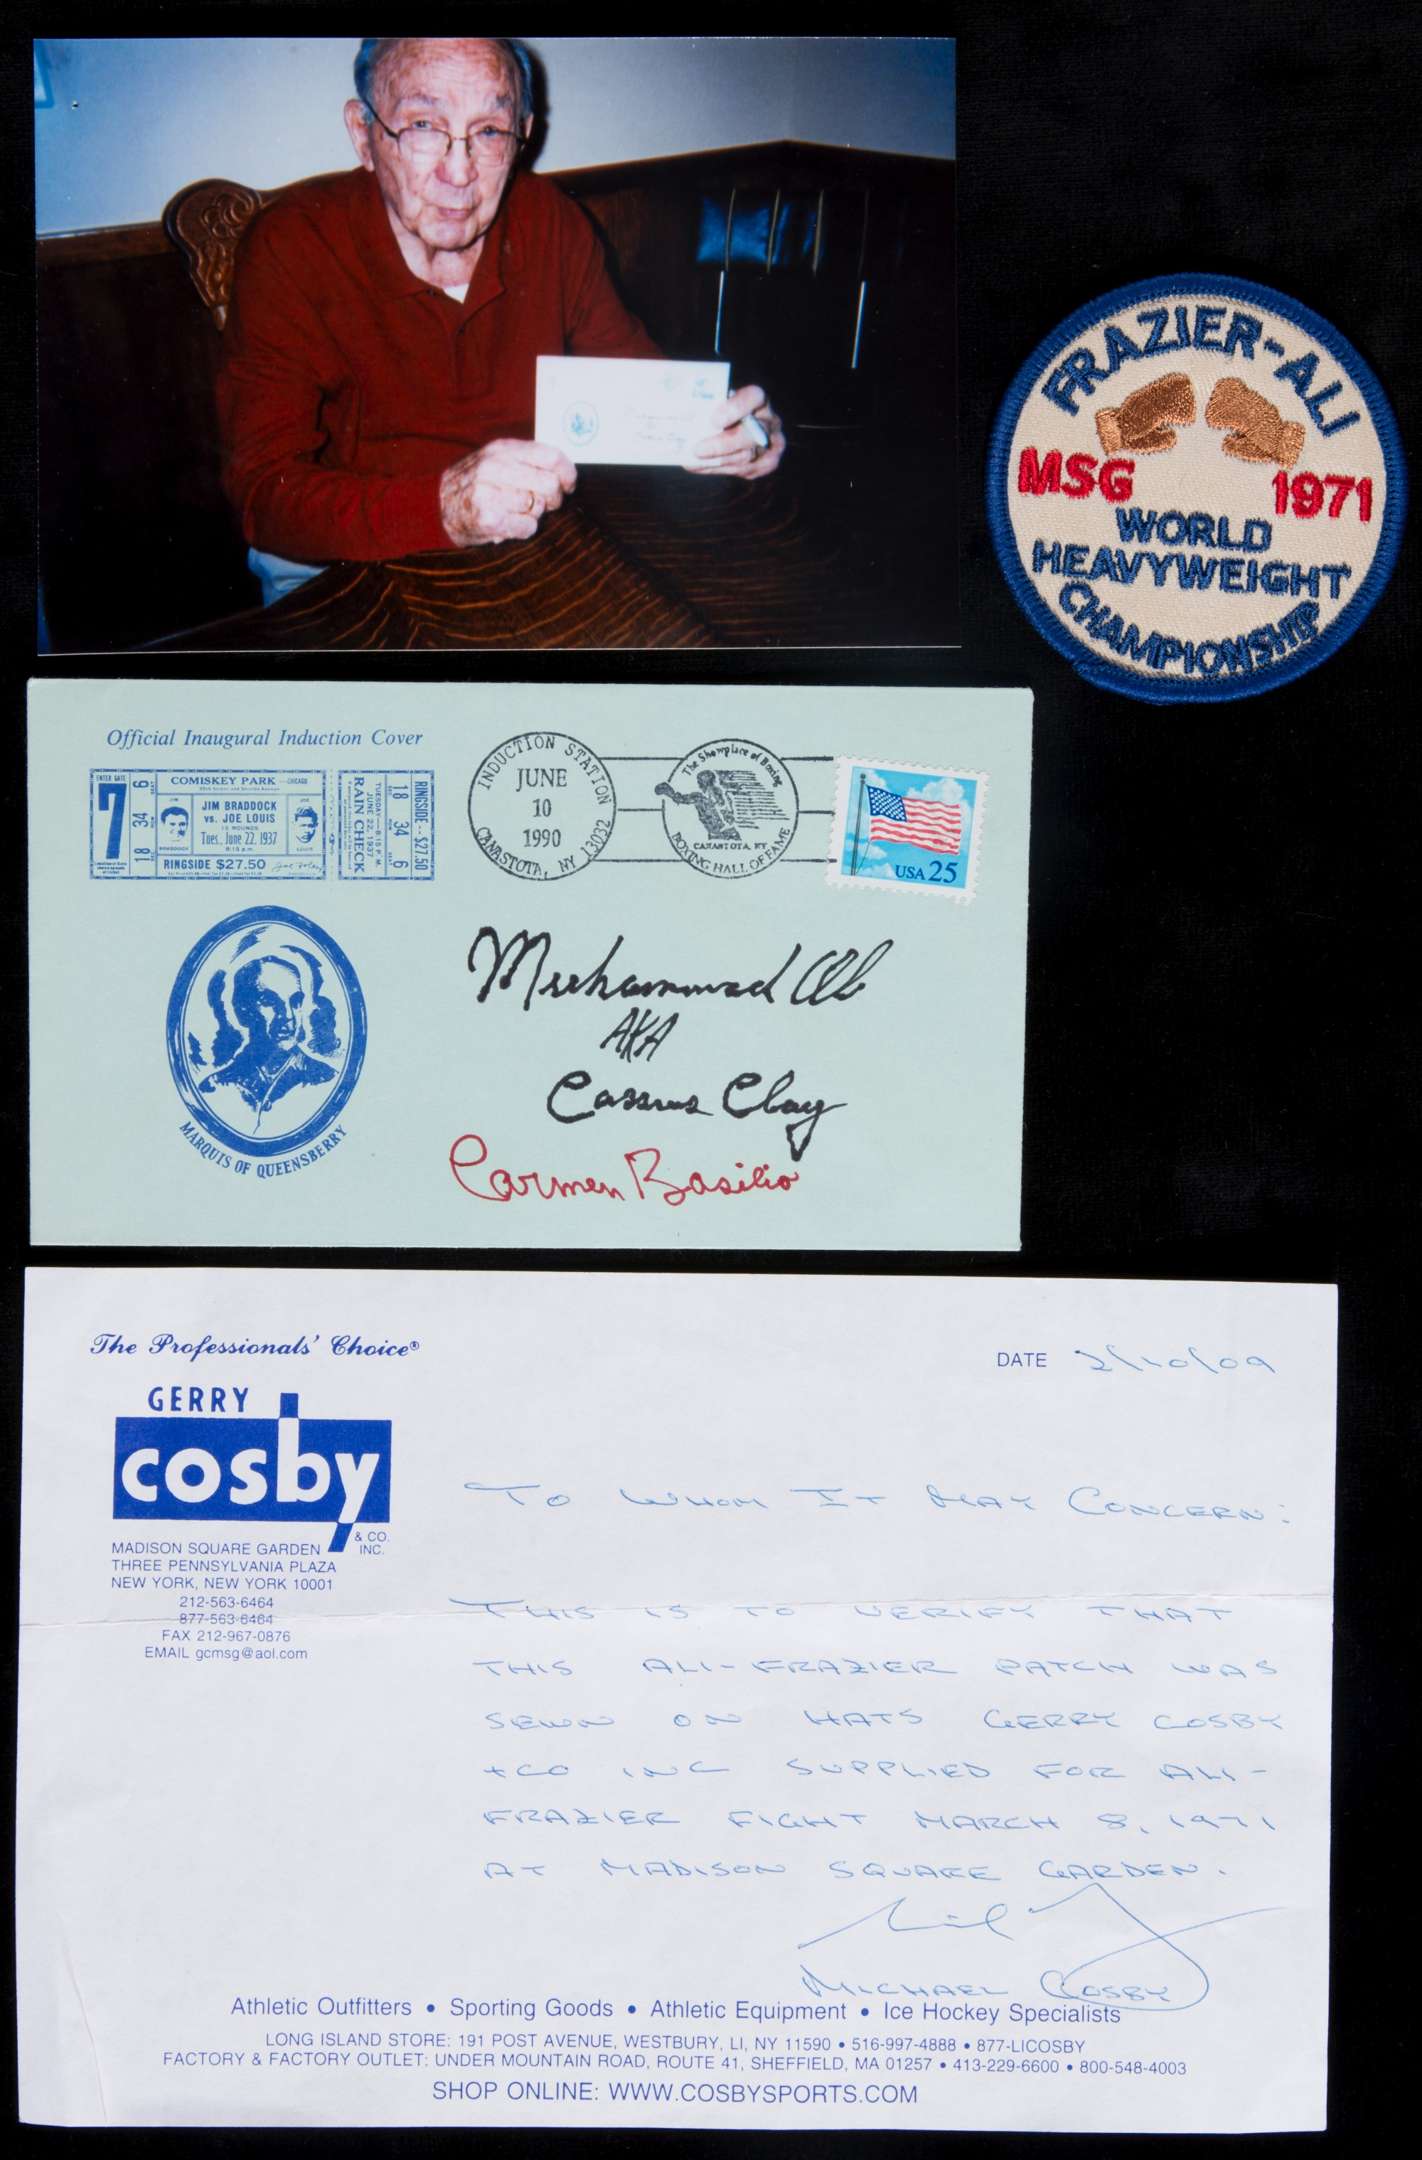 FRAZIER-ALI
MSG 1971
WORLD
HEAVYWEIGHT
CHAMPIONSHIP
Official Inaugural Induction Cover
ENTER GATE
7
18 34 6
COMISKEY PARK CHICAGO
JIM BRADDOCK
vs. JOE LOUIS
15 ROUNDS
Tues., June 22, 1937
8:15 p.m.
RINGSIDE $27.50
JIM
BRADDOCK
JOE
LOUIS
RAIN CHECK
TUESDAY—8:15 P.M.
JUNE 22, 1937
18 34 6
RINGSIDE--$27.50
INDUCTION STATION
JUNE
10
1990
CANASTOTA, NY 13032
The Showplace of Boxing
CANASTOTA, NY
BOXING HALL OF FAME
USA 25
MARQUIS OF QUEENSBERRY
Muhammad Ali
AKA
Cassius Clay
Carmen Basilio
The Professionals' Choice®
GERRY
cosby
& CO.
INC.
MADISON SQUARE GARDEN
THREE PENNSYLVANIA PLAZA
NEW YORK, NEW YORK 10001
212-563-6464
877-563-6464
FAX 212-967-0876
EMAIL gcmsg@aol.com
DATE 2/10/09
TO WHOM IT MAY CONCERN:
THIS IS TO VERIFY THAT
THIS ALI-FRAZIER PATCH WAS
SEWN ON HATS GERRY COSBY
+CO INC SUPPLIED FOR ALI-
FRAZIER FIGHT MARCH 8, 1971
AT MADISON SQUARE GARDEN.
MICHAEL COSBY
Athletic Outfitters • Sporting Goods • Athletic Equipment • Ice Hockey Specialists
LONG ISLAND STORE: 191 POST AVENUE, WESTBURY, LI, NY 11590 • 516-997-4888 • 877-LICOSBY
FACTORY & FACTORY OUTLET: UNDER MOUNTAIN ROAD, ROUTE 41, SHEFFIELD, MA 01257 • 413-229-6600 • 800-548-4003
SHOP ONLINE: WWW.COSBYSPORTS.COM